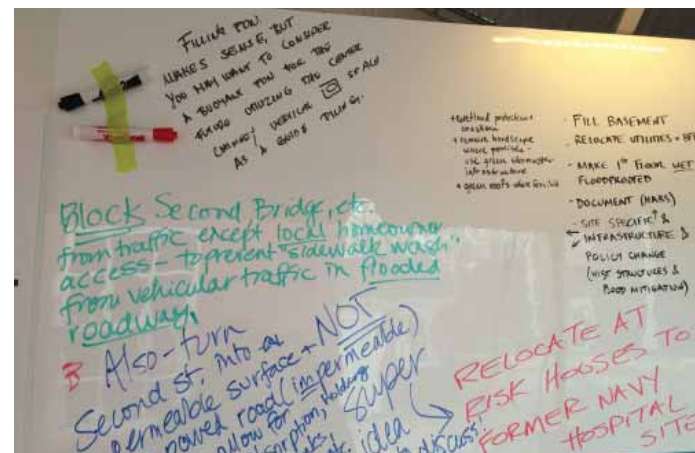 FILLING FDN.
MAKES SENSE, BUT
YOU MAY WANT TO CONSIDER
A BUOYANT FDN FOR THE
FUTURE UTILIZING THE CENTER
CHIMNEY VERTICAL SPACE
AS A GUIDE PILING.
+ wetland protection
+ remove hardscape
where possible -
use green stormwater
infrastructure
+ green roofs where feasible
- FILL BASEMENT
- RELOCATE UTILITIES +
- MAKE 1st FLOOR WET
FLOODPROOFED
- DOCUMENT (HABS)
- SITE SPECIFIC &
INFRASTRUCTURE &
POLICY CHANGE
(HIST STRUCTURES &
FLOOD MITIGATION)
Block Second Bridge, etc.
from traffic except local homeowner
access - to prevent "sidewalk wash"
from vehicular traffic in flooded
roadway.
B Also - turn
Second St. into a
permeable surface + NOT
paved road (impermeable)
allow for
absorption, holding
super
idea
discuss!
RELOCATE AT
RISK HOUSES TO
FORMER NAVY
HOSPITAL
SITE